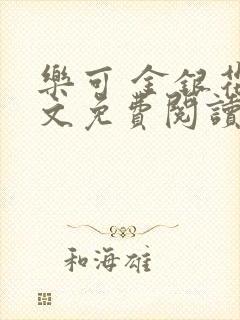 樂可 金銀花
文免費閱讀
和海雄